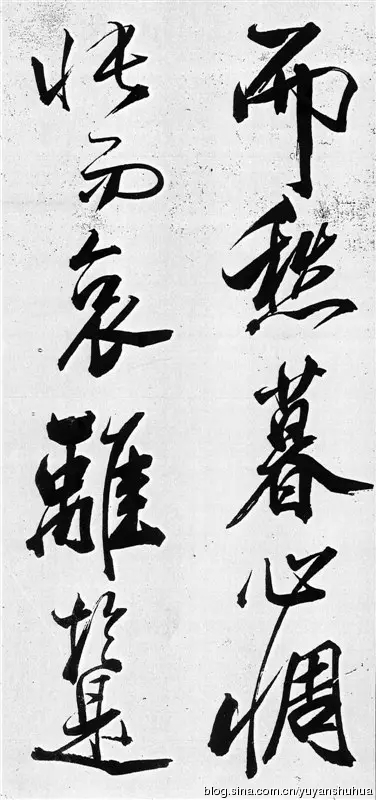 而愁暮心惆
悵而哀離於是
blog.sina.com.cn/yuyanshuhua